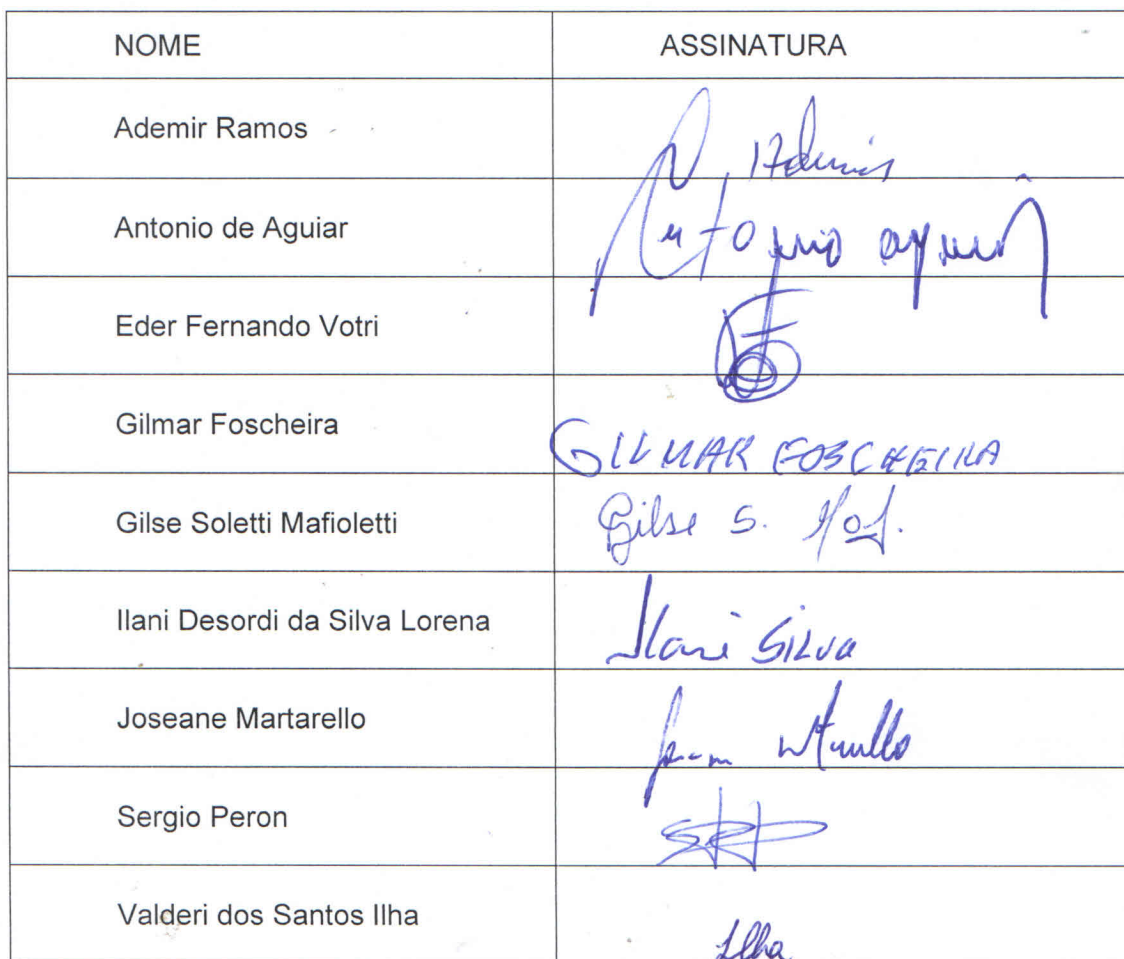 NOME ASSINATURA
Ademir Ramos Ademir
Antonio de Aguiar Antonio
Eder Fernando Votri
Gilmar Foscheira GILMAR FOSCHEIRA
Gilse Soletti Mafioletti Gilse S. Maf.
Ilani Desordi da Silva Lorena Ilani SILVA
Joseane Martarello
Sergio Peron
Valderi dos Santos Ilha Ilha